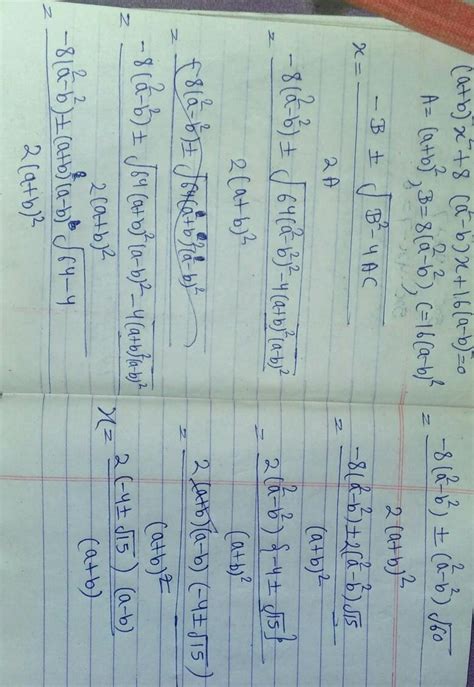 (a+b)²x²+8 (a²-b²)x+16(a-b)²=0
A=(a+b)², B=8(a²-b²), C=16(a-b)²
x = -B ± √B²-4AC
2A
= -8(a²-b²) ± √64(a²-b²)²-4(a+b)²(a-b)²
2(a+b)²
= -8(a²-b²) ± √64(a+b)²(a-b)²-4(a+b)²(a-b)²
2(a+b)²
= -8(a²-b²) ± (a+b)(a-b)√64-4
2(a+b)²
= -8(a²-b²) ± (a²-b²)√60
2(a+b)²
= -8(a²-b²)±2(a²-b²)√15
(a+b)²
= 2(a²-b²){-4±√15}
(a+b)²
= 2(a+b)(a-b)(-4±√15)
(a+b)²
x= 2(-4±√15)(a-b)
(a+b)